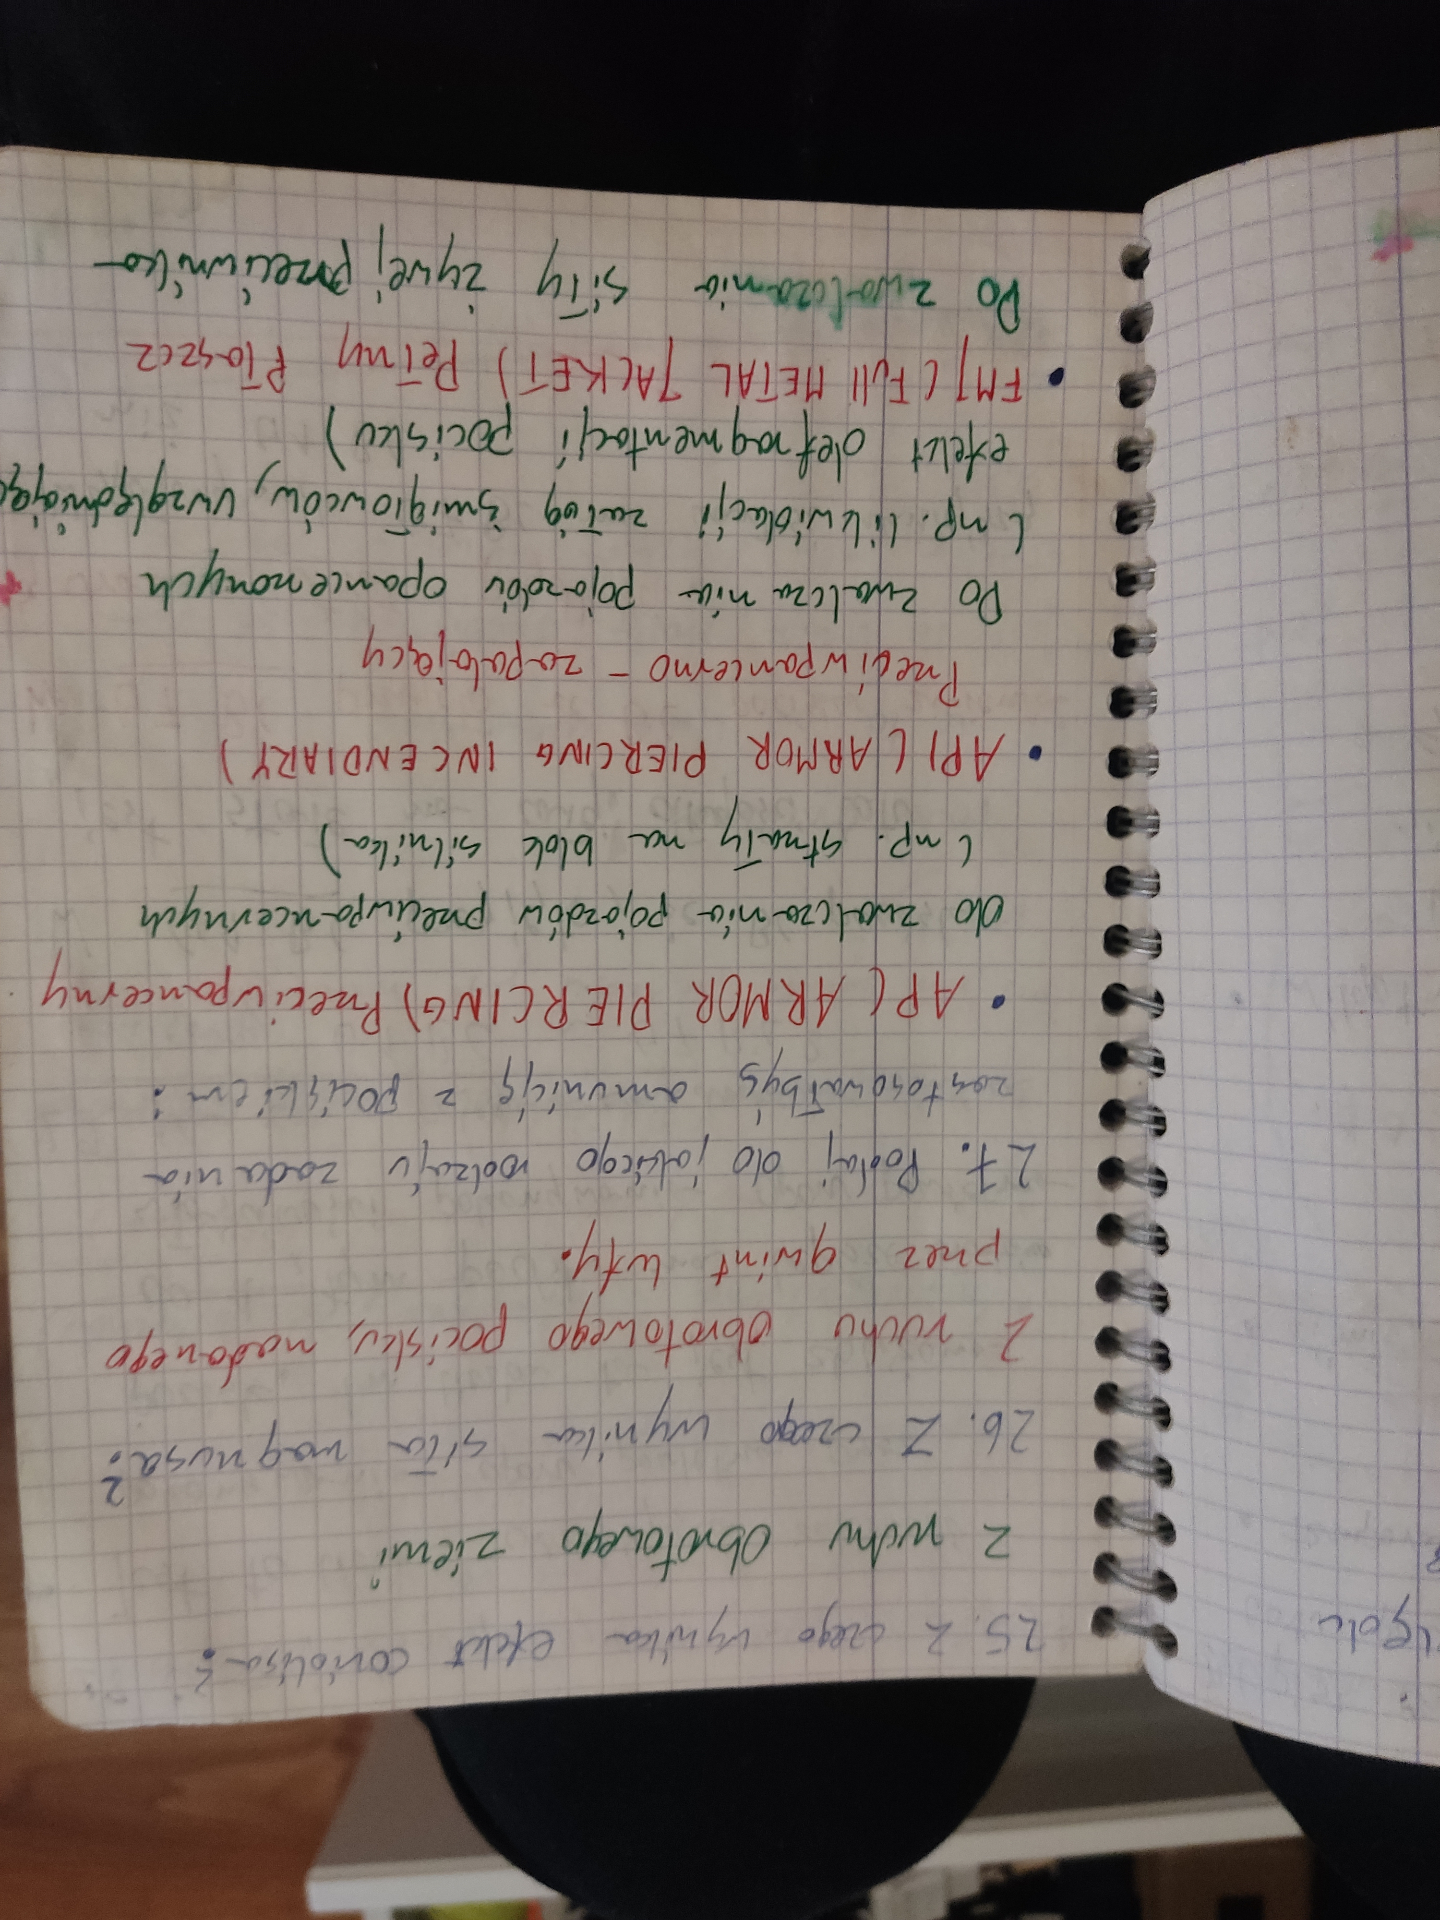 25. Z czego wynika efekt coriolisa?
Z ruchu obrotowego ziemi
26. Z czego wynika siła magnusa?
Z ruchu obrotowego pocisku, nadanego
przez gwint lufy.
27. Podaj do jakiego rodzaju zadania
zastosowałbyś amunicję z pociskiem:
• AP (ARMOR PIERCING) Przeciwpancerny
do zwalczania pojazdów przeciwpancernych
(np. strzały na blok silnika)
• API (ARMOR PIERCING INCENDIARY)
Przeciwpancerno - zapalający
Do zwalczania pojazdów opancerzonych
(np. likwidacji załóg śmigłowców, uwzględniając
efekt defragmentacji pocisku)
• FMJ (Full METAL JACKET) Pełny Płaszcz
Do zwalczania siły żywej przeciwnika